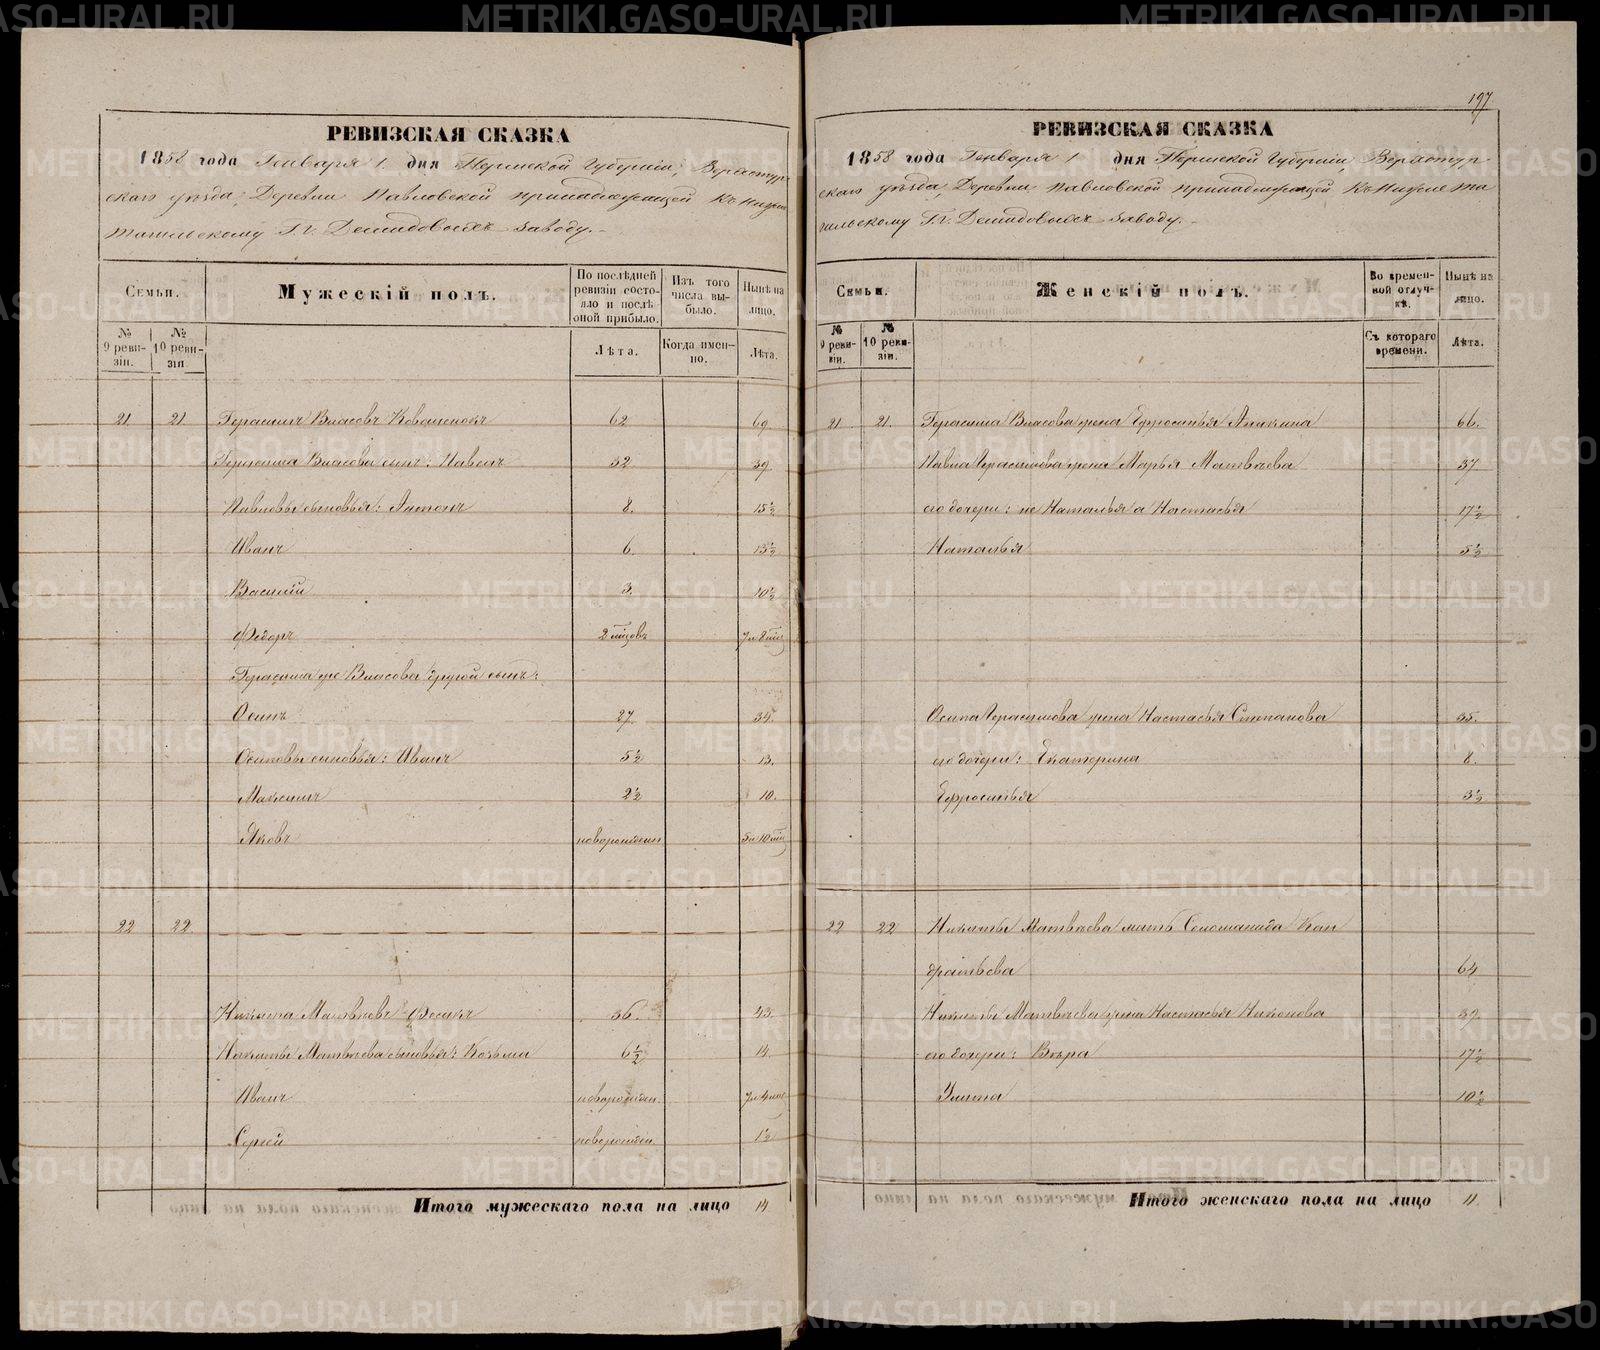 197
РЕВИЗСКАЯ СКАЗКА
1858 года Генваря 1 дня Пермской Губерніи, Верхотур
скаго уѣзда, Деревни Павловской принадлежащей къ Нижне
тагильскому Г.г. Демидовыхъ заводу.
Семьи.
Мужескій полъ.
По послѣдней ревизіи состояло и послѣ оной прибыло.
Изъ того числа выбыло.
Нынѣ на лицо.
№ 9 ревизіи.
№ 10 ревизіи
Лѣта.
Когда именно.
Лѣта.
21 21 Герасимъ Власовъ 62 69.
Герасима Власова сынъ: Павелъ 32 39
Павловы сыновья: Антонъ 8. 15½
Иванъ 6. 13½
Василій 3. 10½
Федоръ 2 мѣсцовъ 7 и 2 мѣс
Герасима же Власова другой сынъ:
Осипъ 27. 34.
Осиповы сыновья: Иванъ 5½ 13.
Максимъ 2½ 10.
Яковъ новорожден 5 и 10 мѣс
22 22
Никита Матвѣевъ 36. 43.
Никиты Матвѣева сыновья: Козьма 6½ 14.
Иванъ новорожден. 7 и 4 мѣс
Сергей новорожден. 1½
Итого мужескаго пола на лицо 14
РЕВИЗСКАЯ СКАЗКА
1858 года Генваря 1 дня Пермской Губерніи, Верхотур
скаго уѣзда, Деревни Павловской принадлежащей къ Нижнета
гильскому Г.г. Демидовыхъ заводу.
Семьи.
Женскій полъ.
Во временной отлучкѣ.
Нынѣ на лицо.
№ 9 ревизіи.
№ 10 ревизіи.
Съ котораго времени.
Лѣта.
21. 21. Герасима Власова жена Ефросинья Аникина 66.
Павла Герасимова жена Марья Матвѣева 37
его дочери: не Наталья а Настасья 17½
Наталья 5½
Осипа Герасимова жена Настасья Степанова 35.
его дочери: Екатерина 8.
Ефросинья 3½
22 22 Никиты Матвѣева мать Соломанида Кон
дратьева 64
Никиты Матвѣева жена Настасья Никонова 39.
его дочери: Вѣра 17½
Улита 10½
Итого женскаго пола на лицо 11.
METRIKI.GASO-URAL.RU